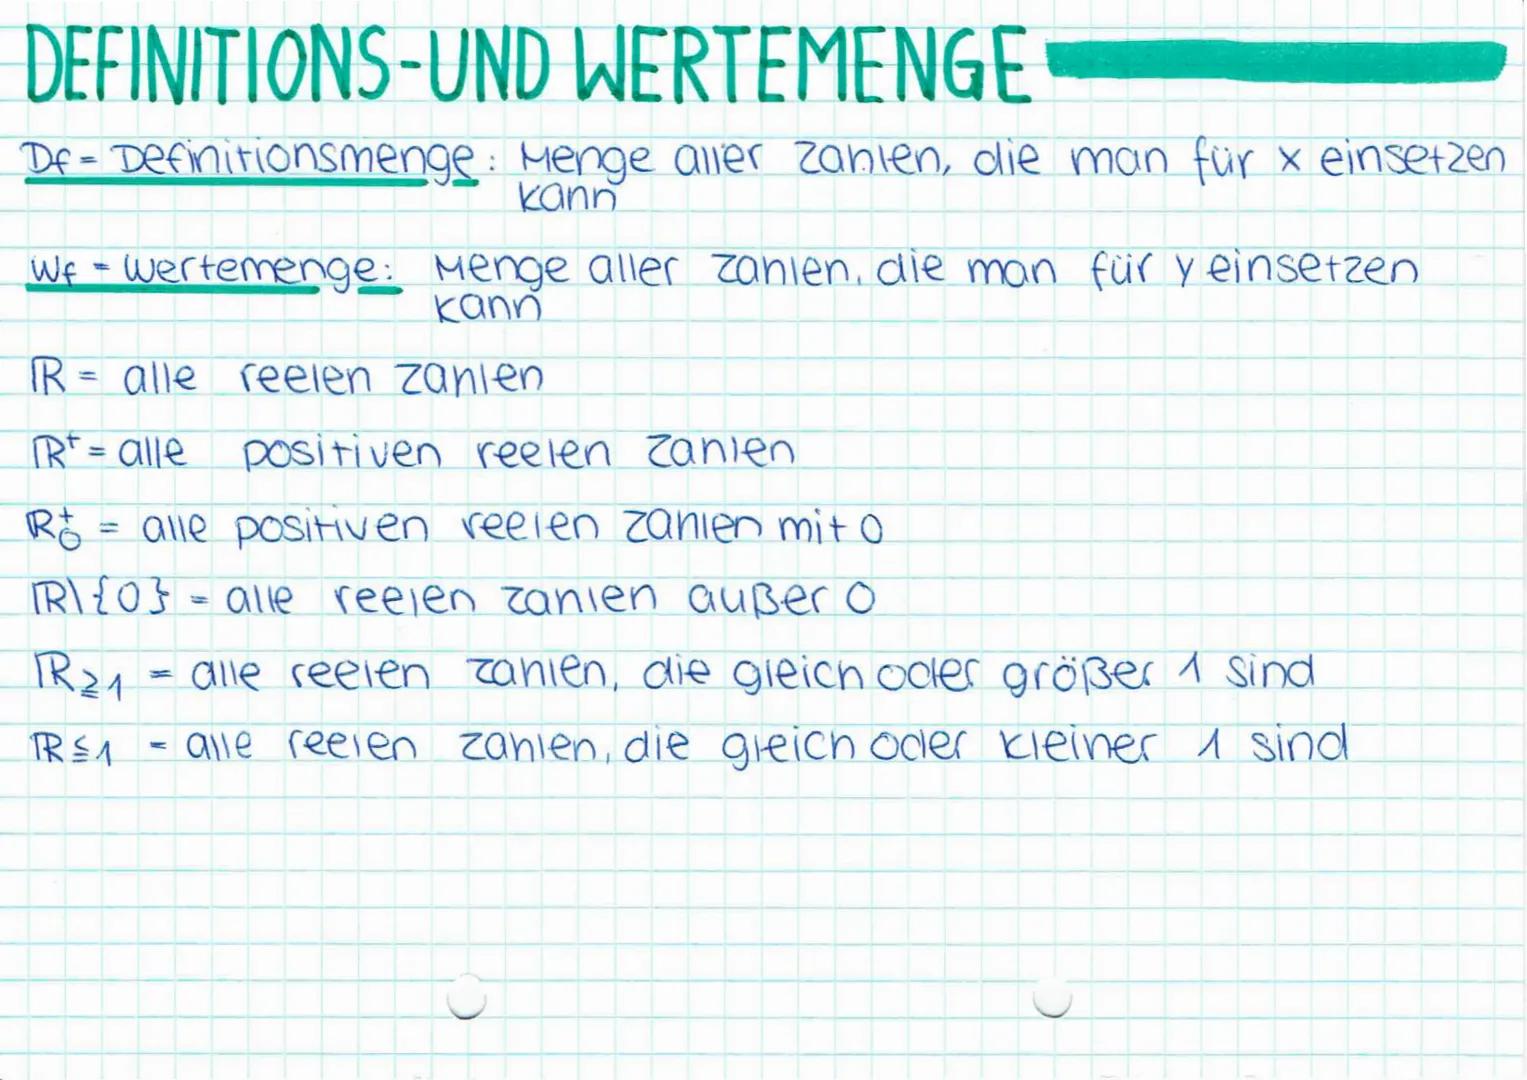 DEFINITIONS-UND WERTEMENGE
Df = Definitionsmenge: Menge aller Zahlen, die man für x einsetzen
kann
Wf = Wertemenge: Menge aller Zahlen, die man für y einsetzen
kann
ℝ = alle reelen Zahlen
ℝ⁺ = alle positiven reelen Zahlen
ℝ₀⁺ = alle positiven reelen Zahlen mit 0
ℝ\{0} = alle reelen Zahlen außer 0
ℝ≥1 = alle reelen Zahlen, die gleich oder größer 1 sind
ℝ≤1 = alle reelen Zahlen, die gleich oder kleiner 1 sind